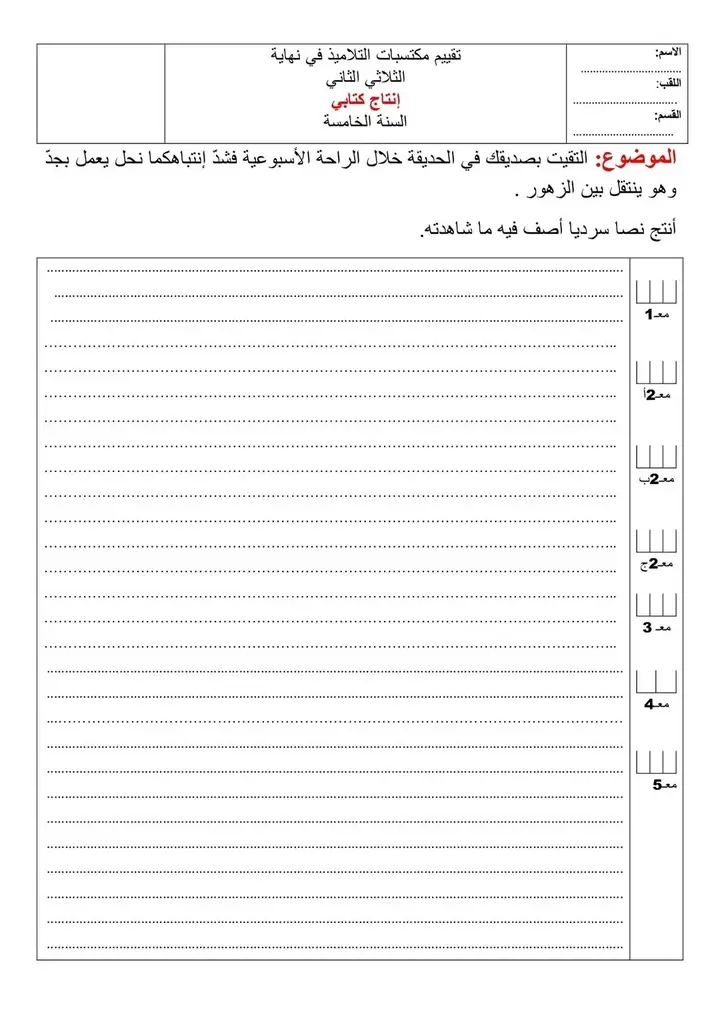 الاسم:
................................
اللقب:
................................
القسم:
................................
تقييم مكتسبات التلاميذ في نهاية
الثلاثي الثاني
إنتاج كتابي
السنة الخامسة
الموضوع: التقيت بصديقك في الحديقة خلال الراحة الأسبوعية فشدّ إنتباهكما نحل يعمل بجدّ
وهو ينتقل بين الزهور .
أنتج نصا سرديا أصف فيه ما شاهدته.
معـ1
معـ2أ
معـ2ب
معـ2ج
معـ 3
معـ4
معـ5